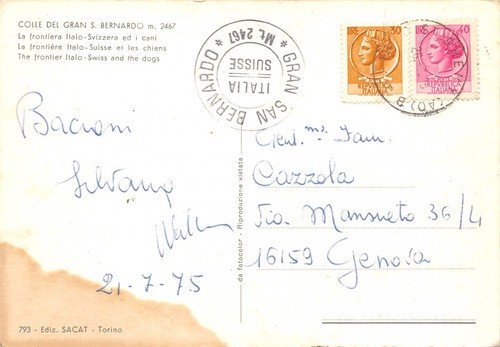 COLLE DEL GRAN S. BERNARDO m. 2467
La frontiera Italo-Svizzera ed i cani
La frontière Italo-Suisse et les chiens
The frontier Italo-Swiss and the dogs
★ GRAN SAN BERNARDO ★ Mt. 2467
ITALIA
SUISSE
LIRE 30
LIRE 40
Bacioni
Silvana
21-7-75
Gent.ma Fam.
Cazzola
Via Mansueto 36/4
16159 Genova
da fotocolor - Riproduzione vietata
793 - Ediz. SACAT - Torino